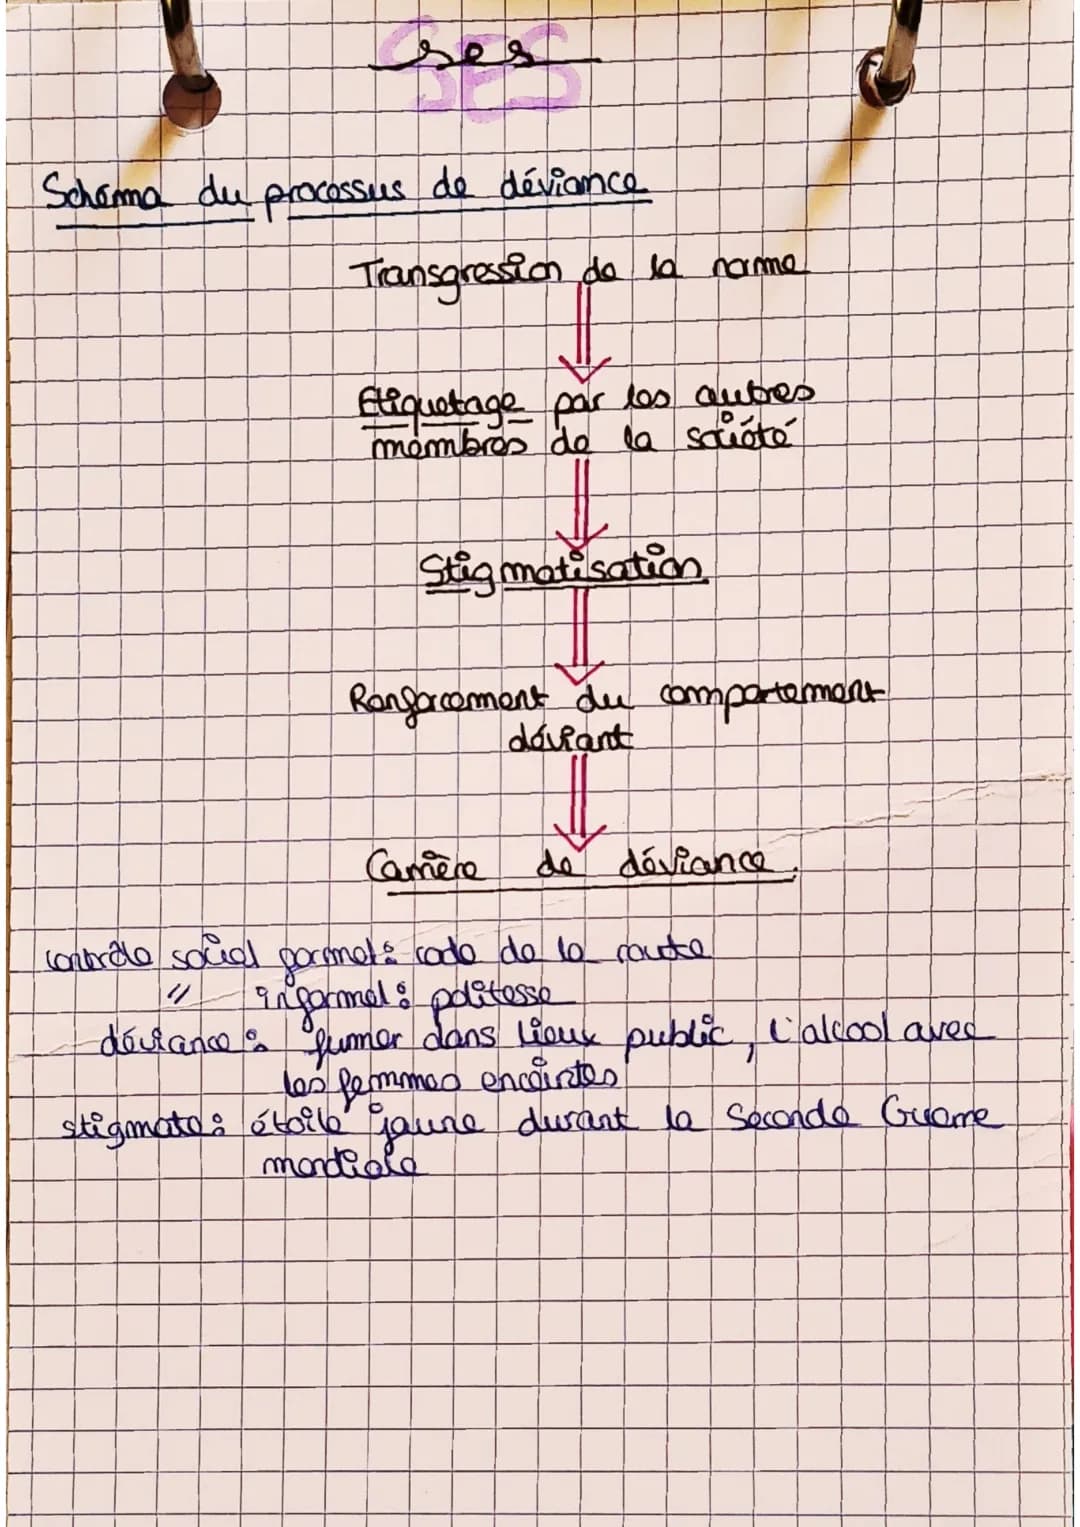 ses
SES
Schéma du processus de déviance
Transgression de la norme
Etiquetage par les autres
membres de la société
Stigmatisation
Renforcement du comportement
déviant
Carrière de déviance.
contrôle social formel : code de la route
" informel : politesse
déviance : fumer dans lieux public, l'alcool avec
les femmes enceintes
stigmate : étoile jaune durant la Seconde Guerre
mondiale